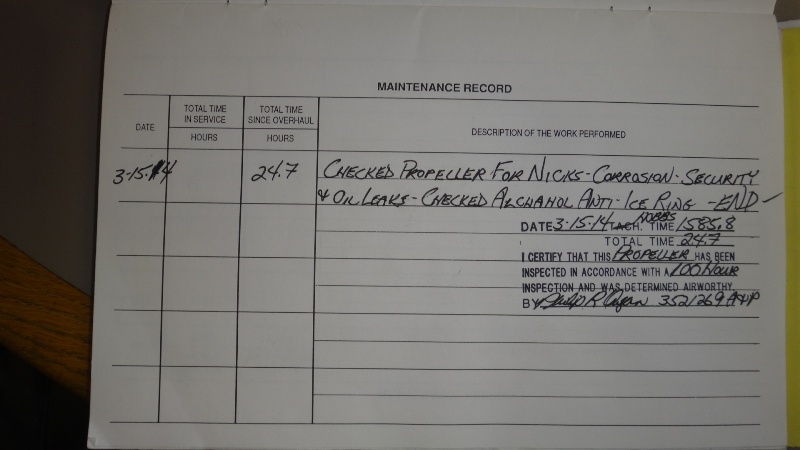 MAINTENANCE RECORD
DATE
TOTAL TIME
IN SERVICE
HOURS
TOTAL TIME
SINCE OVERHAUL
HOURS
DESCRIPTION OF THE WORK PERFORMED
3-15-14 24.7 CHECKED PROPELLER FOR NICKS-CORROSION-SECURITY
& OIL LEAKS-CHECKED ALCHAHOL ANTI-ICE RING -END-
DATE 3-15-14 TACH. HOBBS TIME 1585.8
TOTAL TIME 24.7
I CERTIFY THAT THIS PROPELLER HAS BEEN
INSPECTED IN ACCORDANCE WITH A 100 HOUR
INSPECTION AND WAS DETERMINED AIRWORTHY.
BY Philip R 3521269 A&P